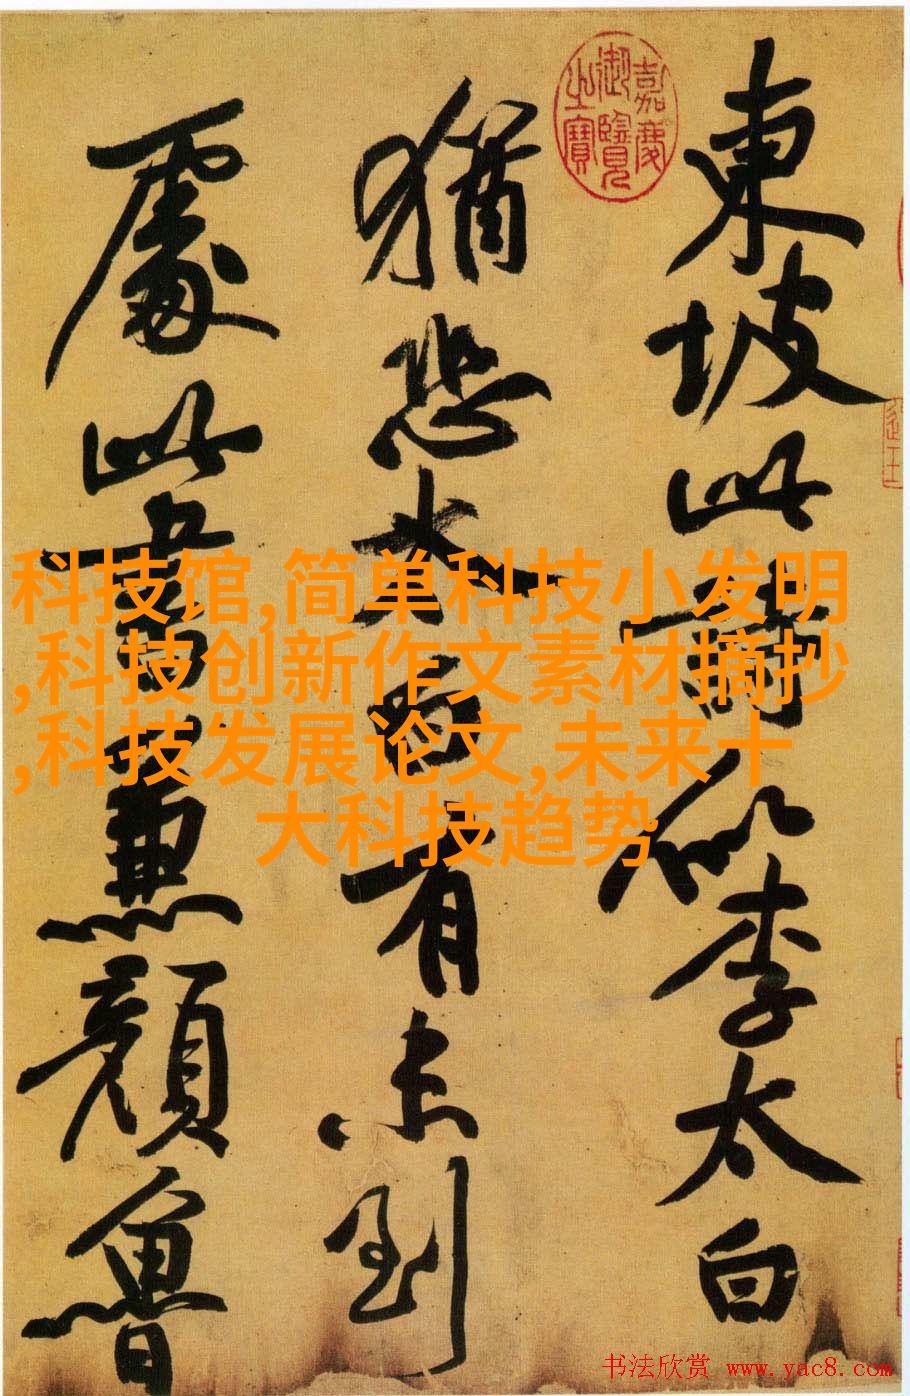 東坡此詩似李太白
猶恐太白有未到
處此書兼顏魯
嘉慶
御覽
之寶
科技馆,简单科技小发明
,科技创新作文素材摘抄
,科技发展论文,未来十
大科技趋势
书法欣赏 www.yac8.com